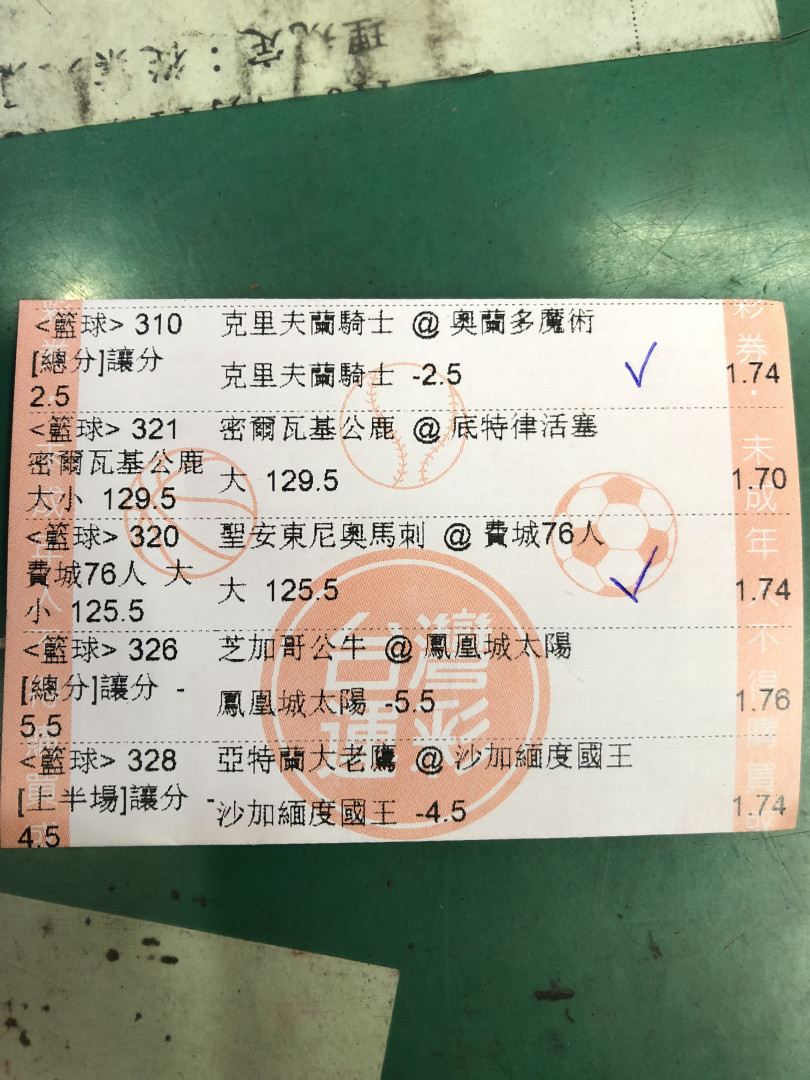 理規定：從
<籃球> 310 克里夫蘭騎士 @ 奧蘭多魔術
[總分]讓分 2.5 克里夫蘭騎士 -2.5 1.74
<籃球> 321 密爾瓦基公鹿 @ 底特律活塞
密爾瓦基公鹿 大小 129.5 大 129.5 1.70
<籃球> 320 聖安東尼奧馬刺 @ 費城76人
費城76人 大小 125.5 大 125.5 1.74
<籃球> 326 芝加哥公牛 @ 鳳凰城太陽
[總分]讓分 -5.5 鳳凰城太陽 -5.5 1.76
<籃球> 328 亞特蘭大老鷹 @ 沙加緬度國王
[上半場]讓分 -4.5 沙加緬度國王 -4.5 1.74
台灣
運彩
彩券．未成年人不得購買或